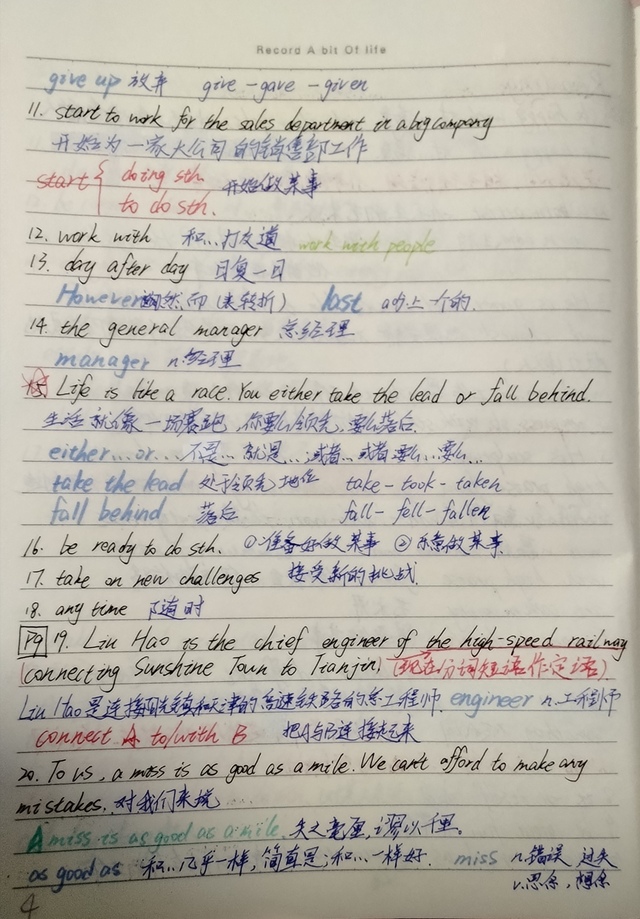 Record A bit Of life
give up 放弃 give-gave-given
11. start to work for the sales department in a big company
开始为一家大公司的销售部工作
start { doing sth. 开始做某事
to do sth.
12. work with 和...打交道 work with people
13. day after day 日复一日
However 然而(表转折) last adj.上一个的.
14. the general manager 总经理
manager n.经理
15. Life is like a race. You either take the lead or fall behind.
生活就像一场赛跑,你要么领先,要么落后.
either...or... 不是...就是...;或者...或者;要么...要么...
take the lead 处于领先地位 take-took-taken
fall behind 落后 fall-fell-fallen
16. be ready to do sth. ①准备好做某事 ②乐意做某事.
17. take on new challenges 接受新的挑战.
18. any time 随时
P9 19. Liu Hao is the chief engineer of the high-speed railway
(connecting Sunshine Town to Tianjin) (现在分词短语作定语)
Liu Hao是连接阳光镇和天津的高速铁路的总工程师. engineer n.工程师
connect A to/with B 把A与B连接起来
20. To us, a miss is as good as a mile. We can't afford to make any
mistakes. 对我们来说
A miss is as good as a mile. 失之毫厘,谬以千里。
as good as 和...几乎一样,简直是;和...一样好. miss n.错误 过失
v.思念,想念
4